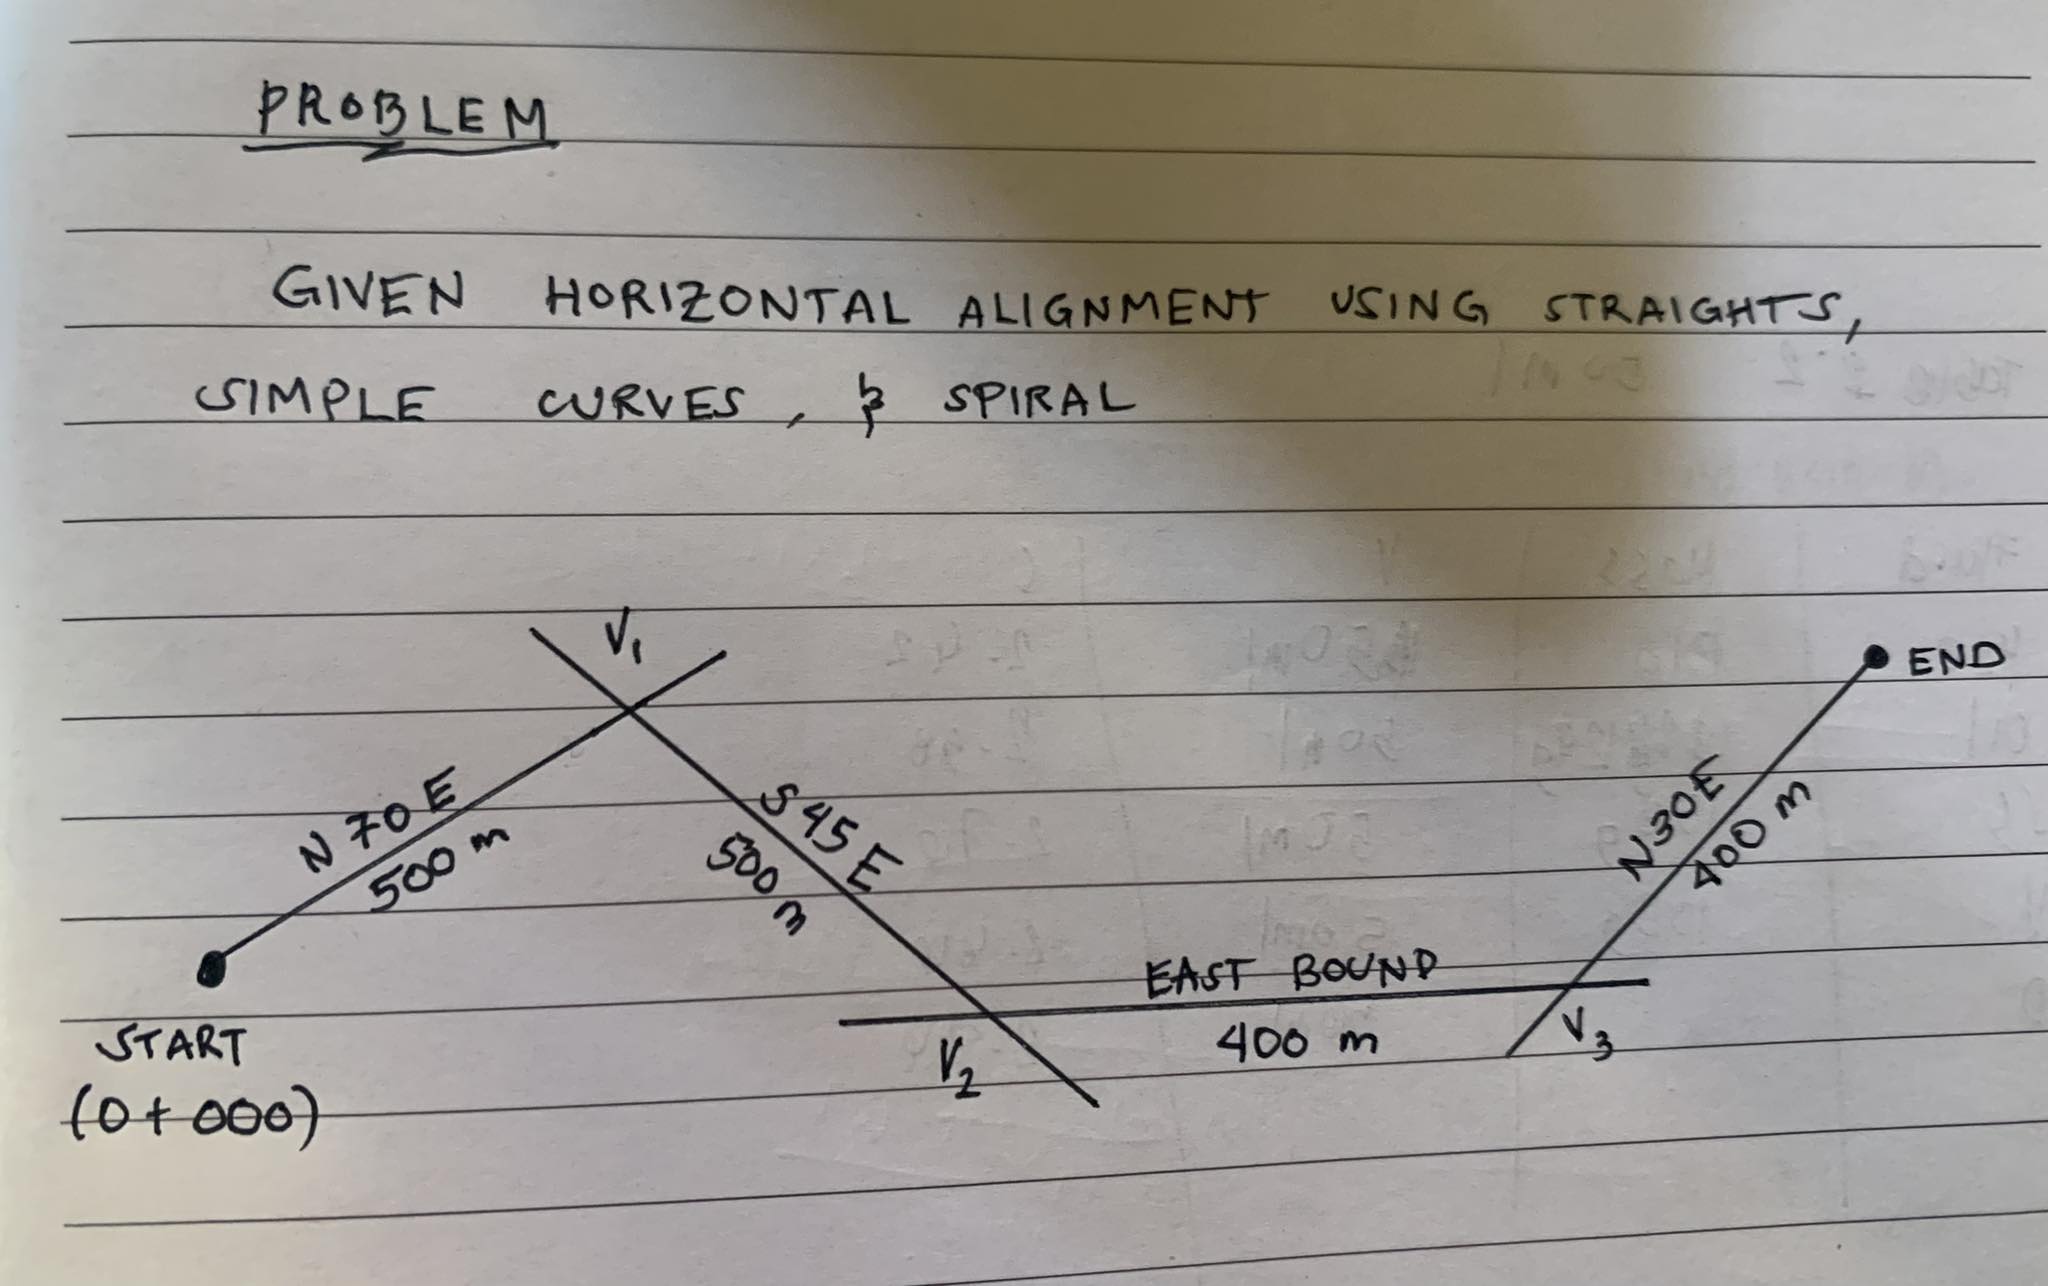 PROBLEM
GIVEN HORIZONTAL ALIGNMENT USING STRAIGHTS,
SIMPLE CURVES, & SPIRAL
V1
END
N 70 E
500 m
S 45 E
500 m
N 30 E
400 m
EAST BOUND
400 m
V2
V3
START
(0+000)